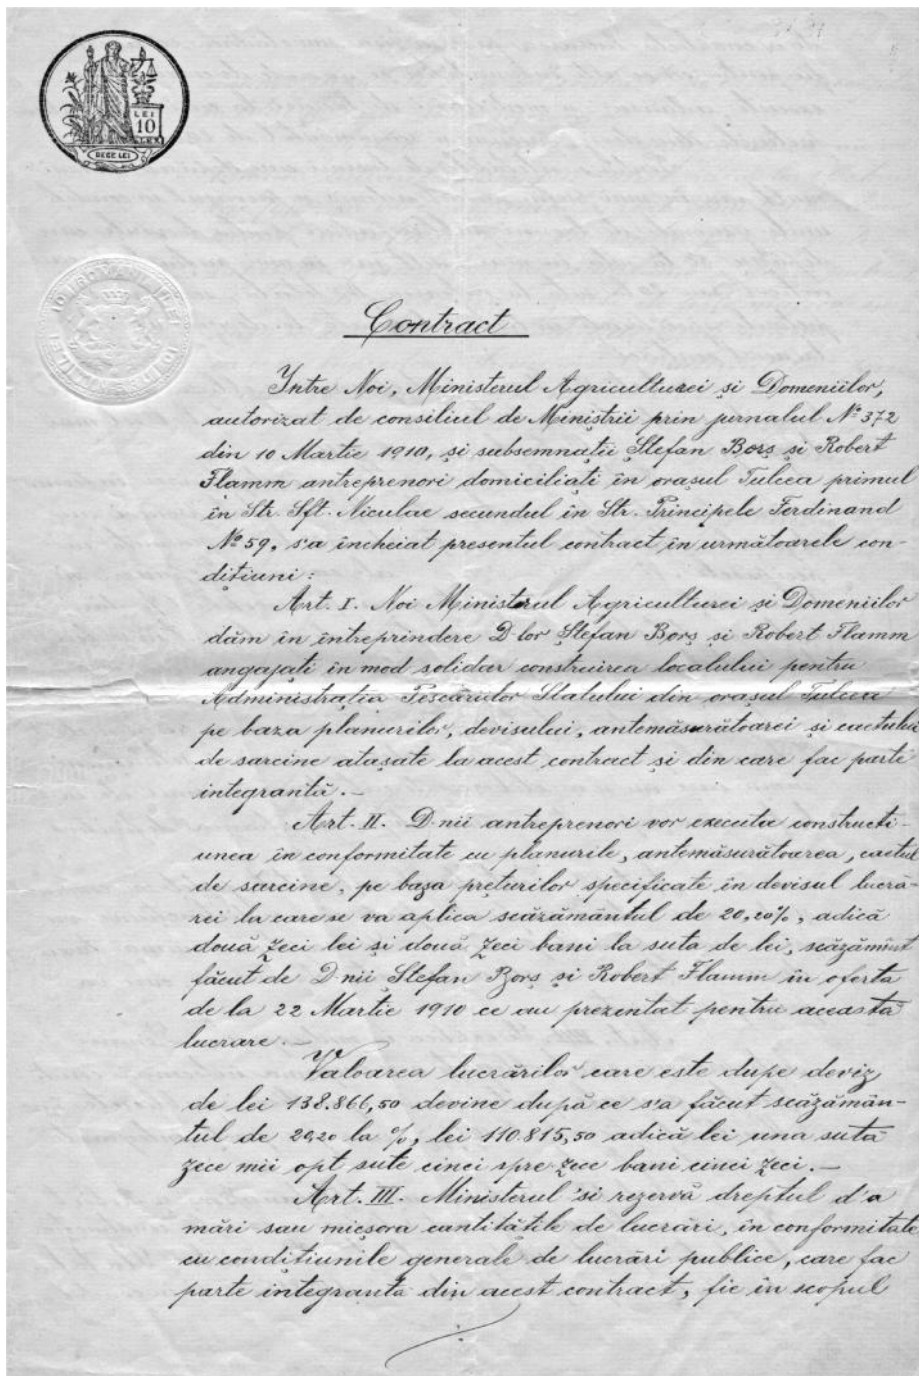 LEI
10
ZECE LEI
Contract
Intre Noi, Ministerul Agriculturei și Domeniilor,
autorizat de consiliul de Miniștrii prin jurnalul No 372
din 10 Martie 1910, și subsemnații Ștefan Borș și Robert
Flamm antreprenori domiciliați în orașul Tulcea primul
în Str. Sft. Niculae secundul în Str. Principele Ferdinand
No 59, s'a încheiat presentul contract în următoarele con-
dițiuni:
Art. I. Noi Ministerul Agriculturei și Domeniilor
dăm in întreprindere D-lor Ștefan Borș și Robert Flamm
angajați în mod solidar construirea localului pentru
Administrația Pescăriilor Statului din orașul Tulcea
pe baza planurilor, devisului, antemăsurătoarei și caetului
de sarcine atașate la acest contract și din care fac parte
integrantă.-
Art. II. D-nii antreprenori vor executa construcți-
unea în conformitate cu planurile, antemăsurătoarea, caetul
de sarcine, pe baza prețurilor specificate în devisul lucră-
rei la care se va aplica scăzământul de 20,20%, adică
două zeci lei și două zeci bani la suta de lei, scăzămînt
făcut de D-nii Ștefan Borș și Robert Flamm în oferta
de la 22 Martie 1910 ce au prezentat pentru această
lucrare.-
Valoarea lucrărilor care este dupe deviz,
de lei 138.866,50 devine după ce s'a făcut scăzămân-
tul de 20,20 la %, lei 110.815,50 adică lei una sută
zece mii opt sute cinci spre zece bani cinci zeci.-
Art. III. Ministerul 'si rezervă dreptul d'a
mări sau micșora cantitățile de lucrări, în conformitate
cu condițiunile generale de lucrări publice, care fac
parte integrantă din acest contract, fie în scopul